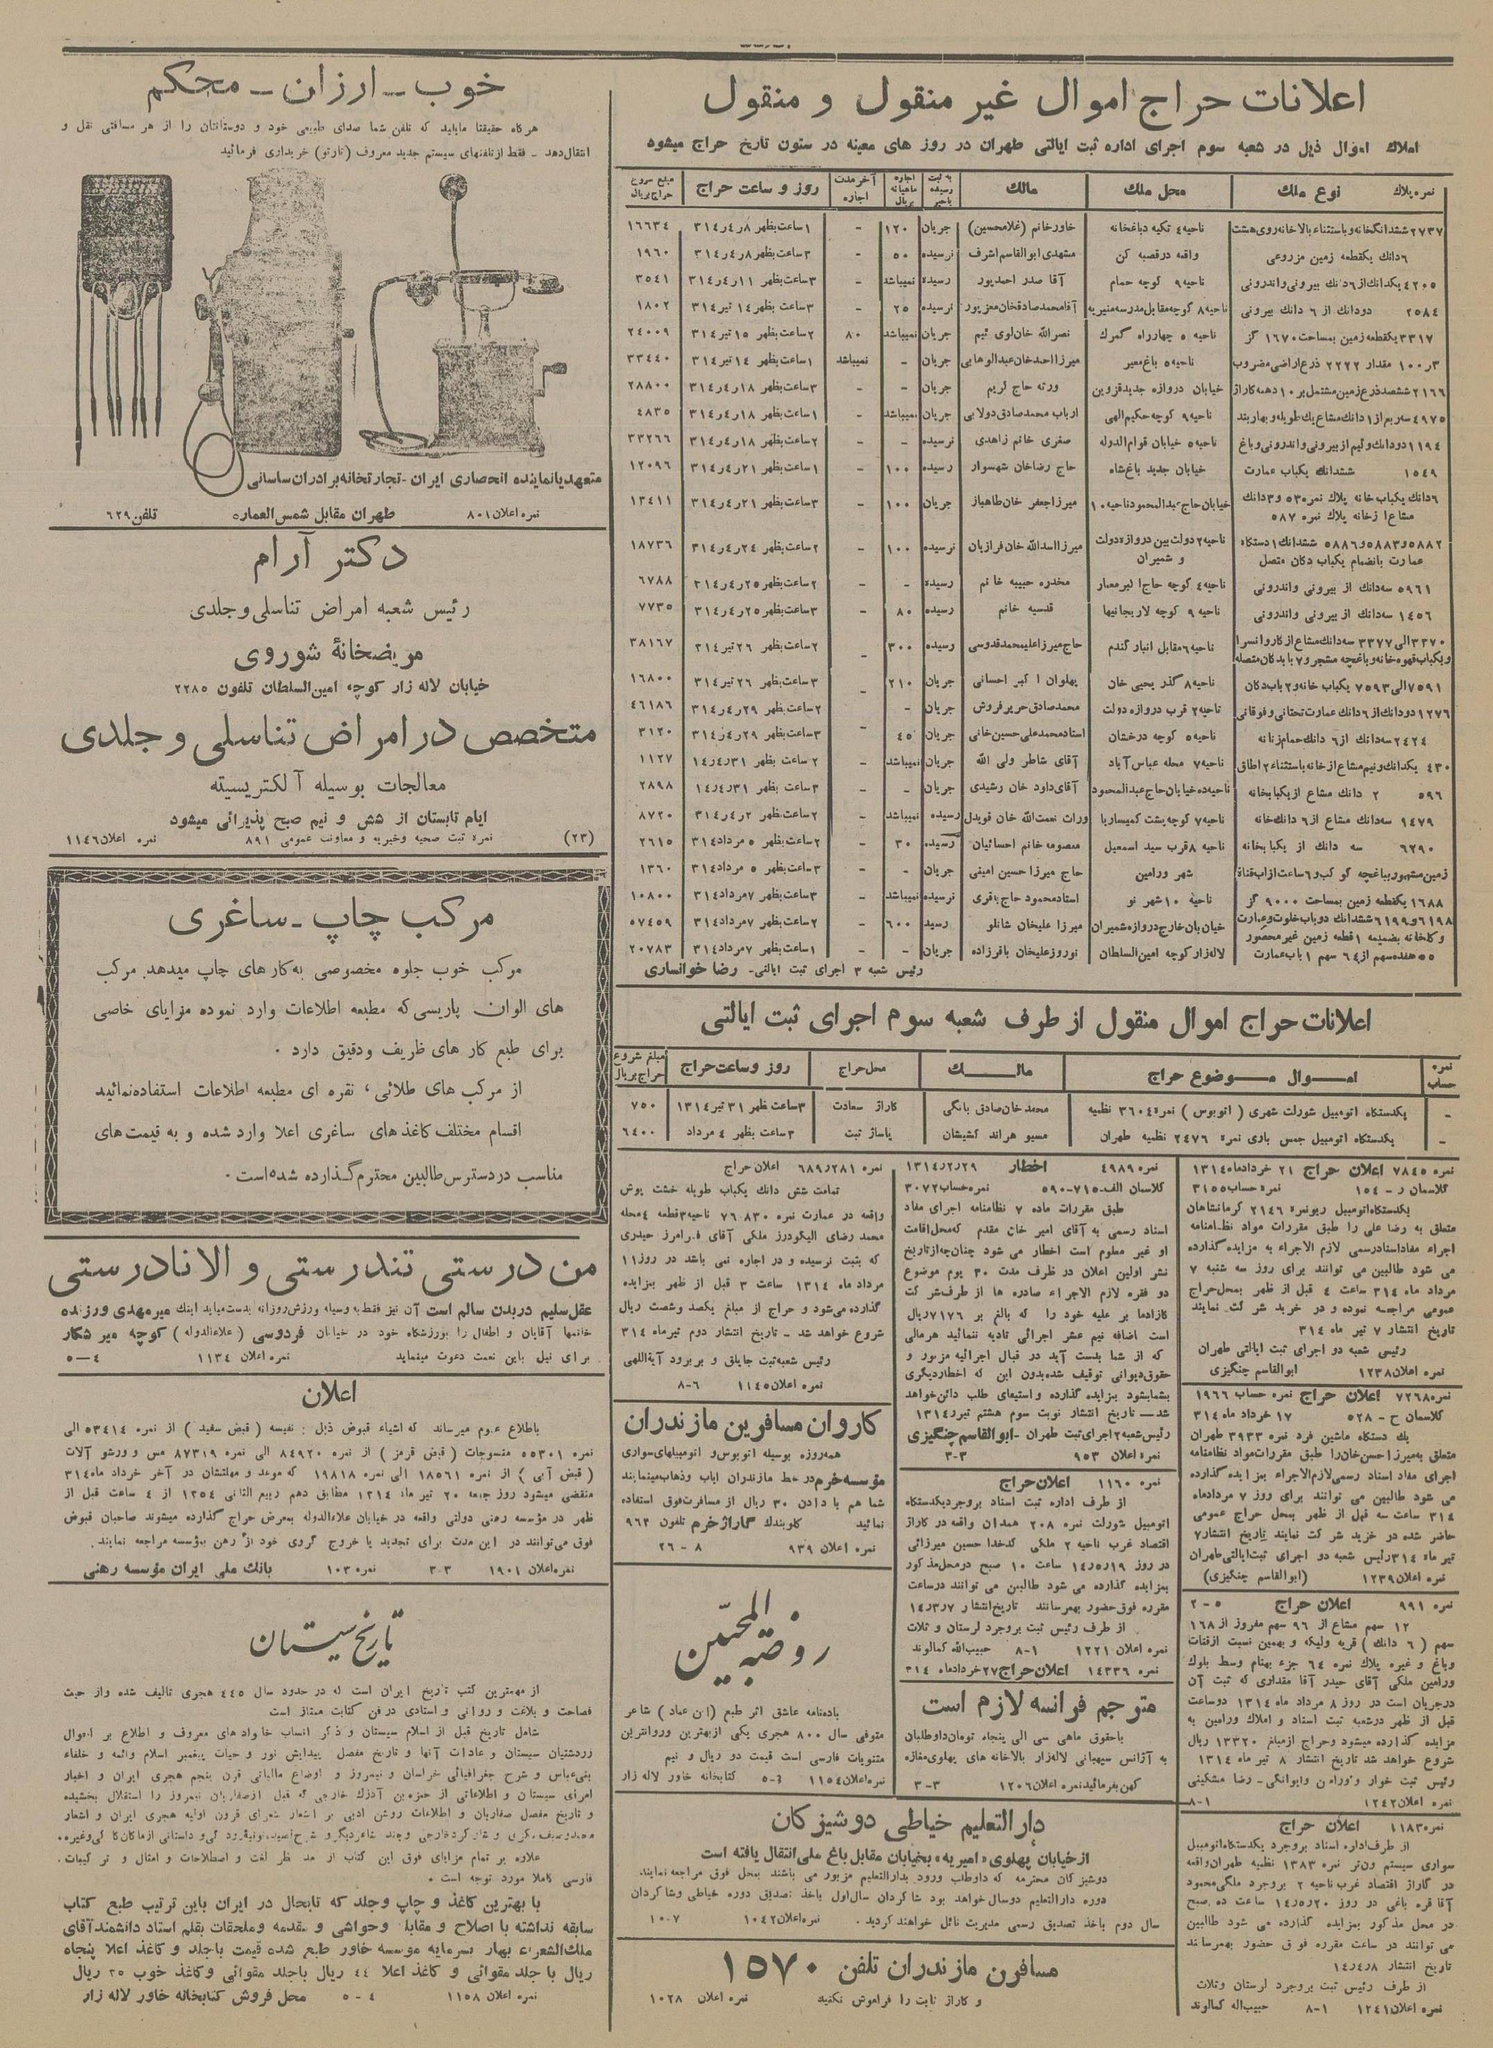 اعلانات حراج اموال غیر منقول و منقول
املاک اموال ذیل در شعبه سوم اجرای اداره ثبت ایالتی طهران در روز های معینه در ستون تاریخ حراج میشود
نمره پلاک نوع ملک محل ملک مالک به ثبت رسیده یا خیر اجاره ماهیانه بریال آخر مدت اجاره روز و ساعت حراج مبلغ شروع حراج بریال
۲۷۳۷ ششدانگ خانه و باستثناء بالاخانه روی هشت ناحیه ٤ تکیه دباغخانه خاور خانم (غلامحسین) جریان ۱۲۰ - ۱ ساعت بظهر ۳۱٤ر٤ر۸ ۱٦٦۳٤
٦ دانک یکقطعه زمین مزروعی واقعه در قصبه کن مشهدی ابوالقاسم اشرف نرسیده ٥۰ - ۳ ساعت بظهر ۳۱٤ر٤ر۸ ۱۹٦۰
٤۲۰٥ یکدانک از ٦ دانک بیرونی و اندرونی ناحیه ۹ کوچه حمام آقا صدر احمدپور رسیده نمیباشد - ۳ ساعت بظهر ۳۱٤ر٤ر۱۱ ۳٥٤۱
۲٥۸٤ دودانک از ٦ دانک بیرونی ناحیه ۸ کوچه مقابل مدرسه منیریه آقا محمد صادقخان معزپور نرسیده ۲٥ - ۳ ساعت بظهر ۱٤ تیر ۳۱٤ ۱۸۰۲
۳۳۱۷ یکقطعه زمین بمساحت ۱٦۷۰ گز ناحیه ٥ چهارراه گمرک نصرالله خان لوی ئیم جریان نمیباشد ۸۰ ۲ ساعت بظهر ۱٥ تیر ۳۱٤ ۲٤۰۰۹
۳ر۱۰۰ مقدار ۲۲۲۲ ذرع اراضی مضروب ناحیه ٥ باغ معیر میرزا احمد خان عبدالوهابی جریان - نمیباشد ۱ ساعت بظهر ۱٤ تیر ۳۱٤ ۳۳٤٤۰
۲۱٦٦ ششصد ذرع زمین مشتمل بر ۱۰ دهمه کاراژ خیابان دروازه جدید قزوین ورثه حاج کریم جریان - - ۳ ساعت بظهر ۳۱٤ر٤ر۱۸ ۲۸۸۰۰
٤۹۷٥ سه ربع از ۱ دانک مشاع یک طویله و بهاربند ناحیه ۹ کوچه حکیم الهی ارباب محمد صادق دولابی جریان نمیباشد - ۱ ساعت بظهر ۳۱٤ر٤ر۱۸ ٤۸۳٥
۱۱۹٤ دودانک و نیم از بیرونی و اندرونی و باغ ناحیه ٥ خیابان قوام الدوله صغری خانم زاهدی نرسیده - - ۲ ساعت بظهر ۳۱٤ر٤ر۱۸ ۳۳۲٦٦
۱٥٤۹ ششدانک یکباب عمارت خیابان جدید باغ شاه حاج رضاخان شهسوار رسیده ۱۰۰ - ۱ ساعت بظهر ۳۱٤ر٤ر۲۱ ۱۲۰۹٦
٦ دانک یکباب خانه پلاک نمره ٥۳ و ۳ دانک مشاع از خانه پلاک نمره ٥۸۷ خیابان حاج عبدالمحمود ناحیه ۱۰ میرزا جعفر خان طاهباز جریان ۱۰۰ - ۳ ساعت بظهر ۳۱٤ر٤ر۲۱ ۱۳٤۱۱
٥۸۸۲ و ٥۸۸۳ و ٥۸۸٦ ششدانک ۱ دستگاه عمارت بانضمام یکباب دکان متصل ناحیه ۲ دولت بین دروازه دولت و شمیران میرزا اسدالله خان فرازیان نرسیده ۱۰۰ - ۲ ساعت بظهر ۳۱٤ر٤ر۲٤ ۱۸۷۳٦
٥۹٦۱ سه دانک از بیرونی و اندرونی ناحیه ٤ کوچه حاج اکبر معمار مخدره حبیبه خانم رسیده - - ۲ ساعت بظهر ۳۱٤ر٤ر۲٥ ٦۷۸۸
۱٤٥٦ سه دانک از بیرونی واندرونی ناحیه ۹ کوچه لاریجانیها قدسیه خانم رسیده ۸۰ - ۳ ساعت بظهر ۳۱٤ر٤ر۲٥ ۷۷۳٥
۳۳۷۰ الی ۳۳۷۷ سه دانک مشاع از کاروانسرا و یکباب قهوه خانه و باغچه مشجر و ۷ باب دکان متصله ناحیه ٦ مقابل انبار گندم حاج میرزا علیمحمد قدوسی رسیده ۳۰۰ - ۲ ساعت بظهر ۲٦ تیر ۳۱٤ ۳۸۱٦۷
۷٥۹۱ الی ۷٥۹۳ یکباب خانه و ۲ باب دکان ناحیه ۸ گذر یحیی خان پهلوان اکبر احسانی جریان ۲۱۰ - ۳ ساعت بظهر ۲٦ تیر ۳۱٤ ۱٦۸۰۰
۱۲۷٦ دودانک از ٦ دانک عمارت تحتانی و فوقانی ناحیه ۲ قرب دروازه دولت محمد صادق حریرفروش جریان - - ۲ ساعت بظهر ۳۱٤ر٤ر۲۹ ٤٦۱۸٦
۲٤۲٤ سه دانک از ٦ دانک حمام زنانه ناحیه ٥ کوچه درخشان استاد محمد علی حسین خانی جریان ٤٥ - ۳ ساعت بظهر ۳۱٤ر٤ر۲۹ ۳۱۲۰
٤۳۰ یکدانک و نیم مشاع از خانه باستثناء ۲ اطاق ناحیه ۷ محله عباس آباد آقای شاطر ولی الله جریان نمیباشد - ۲ ساعت بظهر ۱٤ر٤ر۳۱ ۱۱۲۷
٥۹٦ ۲ دانک مشاع از یکبابخانه ناحیه ده خیابان حاج عبدالمحمود آقای داود خان رشیدی جریان - - ۳ ساعت بظهر ۱٤ر٤ر۳۱ ۲۸۹۸
۱٤۷۹ سه دانک مشاع از ٦ دانک خانه ناحیه ۷ کوچه پشت کمیساریا وراث نعمت الله خان قویدل رسیده نمیباشد - ۲ ساعت بظهر ۳۱٤ر٤ر۲ ۸۷۲۰
٦۲۹۰ سه دانک از یکبابخانه ناحیه ۸ قرب سید اسمعیل معصومه خانم احسائیان رسیده ۳۰ - ۲ ساعت بظهر ٥ مرداد ۳۱٤ ۲٦۱٥
زمین مشهور بباغچه کوکب و ٦ ساعت از آب قناة شهر ورامین حاج میرزا حسین امینی جریان - - ۳ ساعت بظهر ٥ مرداد ۳۱٤ ۱۳٦۰
۱٦۸۸ یکقطعه زمین بمساحت ۹۰۰۰ گز ناحیه ۱۰ شهر نو استاد محمود حاج باقری نرسیده نمیباشد - ۳ ساعت بظهر ۷ مرداد ۳۱٤ ۱۰۸۰۰
٦۱۹۸ و ٦۱۹۹ ششدانک دو باب خلوت و عمارت و کلاخانه بضمیمه ۱ قطعه زمین غیر محصور خیابان خارج دروازه شمیران میرزا علیخان شانلو رسید ٦۰۰ - ۲ ساعت بظهر ۷ مرداد ۳۱٤ ٥۷٤٥۹
٥٥ هفده سهم از ٦٤ سهم ۱ باب عمارت لاله زار کوچه امین السلطان نوروز علیخان باقرزاده جریان - - ۱ ساعت بظهر ۷ مرداد ۳۱٤ ۲۰۷۸۳
رئیس شعبه ۳ اجرای ثبت ایالتی - رضا خوانساری
اعلانات حراج اموال منقول از طرف شعبه سوم اجرای ثبت ایالتی
نمره حساب اموال موضوع حراج مالک محل حراج روز و ساعت حراج مبلغ شروع حراج بریال
- یکدستگاه اتومبیل شورلت شهری ( اتوبوس ) نمره ۳٦۰٤ نظمیه محمد خان صادق بانگی کاراژ سعادت ۳ ساعت ظهر ۳۱ تیر ۱۳۱٤ ۷٥۰
- یکدستگاه اتومبیل جمس باری نمره ۲٤۷٦ نظمیه طهران مسیو هراند کشیشان پاساژ ثبت ۳ ساعت بظهر ٤ مرداد ٦٤۰۰
نمره ۷۸٤٥ اعلان حراج ۲۱ خرداد ماه ۱۳۱٤
کلاسمان ر - ۱٥٤ نمره حساب ۳۱٥٥
یکدستگاه اتومبیل ریو نمره ۲۱٤٦ کرمانشاهان
متعلق به رضا علی را طبق مقررات مواد نظامنامه
اجراء مفاد اسناد رسمی لازم الاجراء به مزایده گذارده
می شود طالبین می توانند برای روز سه شنبه ۷
مرداد ماه ۳۱٤ ساعت ٤ قبل از ظهر بمحل حراج
عمومی مراجعه نموده و در خرید شرکت نمایند
تاریخ انتشار ۷ تیر ماه ۳۱٤
رئیس شعبه دو اجرای ثبت ایالتی طهران
نمره اعلان ۱۲۳۸ ابوالقاسم چنگیزی
نمره ۷۲٦۸ اعلان حراج نمره حساب ۱۹٦٦
کلاسمان ح - ٥۲۸ ۱۷ خرداد ماه ۳۱٤
یک دستگاه ماشین فرد نمره ۳۹۳۳ طهران
متعلق به میرزا حسن خان را طبق مقررات مواد نظامنامه
اجرای مفاد اسناد رسمی لازم الاجراء بمزایده گذارده
می شود طالبین می توانند برای روز ۷ مرداد ماه
۳۱٤ ساعت سه قبل از ظهر بمحل حراج عمومی
حاضر شده در خرید شرکت نمایند تاریخ انتشار ۷
تیر ماه ۳۱٤ رئیس شعبه دو اجرای ثبت ایالتی طهران
نمره اعلان ۱۲۳۹ (ابوالقاسم چنگیزی)
نمره ۹۹۱ اعلان حراج ٥-۲
۱۲ سهم مشاع از ۹٦ سهم مفروز از ۱٦۸
سهم ( ٦ دانک ) قریه ولیکه و بهمین نسبت از قنات
وباغ و غیره پلاک نمره ٦٤ جزء بهنام وسط بلوک
ورامین ملکی آقای حیدر آقا مقداری که ثبت آن
درجریان است در روز ۸ مرداد ماه ۱۳۱٤ دو ساعت
قبل از ظهر درشعبه ثبت اسناد و املاک ورامین به
مزایده گذارده میشود وحراج از مبلغ ۱۳۳۲۰ ریال
شروع خواهد شد تاریخ انتشار ۸ تیر ماه ۱۳۱٤
رئیس ثبت خوار و ورامین و ایوانکی - رضا مشکینی
نمره اعلان ۱۲٤۲ ۱-۸
نمره ۱۱۸۳ اعلان حراج
از طرف اداره اسناد بروجرد یکدستگاه اتومبیل
سواری سیستم ون تر نمره ۱۳۸۳ نظمیه طهران واقعه
در گاراژ اقتصاد غرب ناحیه ۲ بروجرد ملکی محمود
آقا قره باغی در روز ۱٤ر٥ر۲۰ ساعت ده صبح
در محل مذکور بمزایده گذارده می شود طالبین
می توانند در ساعت مقرره فوق حضور بهمرسانند
تاریخ انتشار ۱٤ر٤ر۸
از طرف رئیس ثبت بروجرد لرستان و ثلاث
نمره اعلان ۱۲٤۱ ۱-۸ حبیب اله کمالوند
نمره ٤۹۸۹ اخطار ۱۳۱٤ر۲ر۲۹
کلاسمان الف-۷۱٥-٥۹۰ نمره حساب ۳۰۷۲
طبق مقررات ماده ۷ نظامنامه اجرای مفاد
اسناد رسمی به آقای امیر خان مقدم که محل اقامت
او غیر معلوم است اخطار می شود چنانچه از تاریخ
نشر اولین اعلان در ظرف مدت ۳۰ یوم موضوع
دو فقره لازم الاجراء صادره ها از طرف شرکت
کازادما بر علیه خود را که بالغ بر ۷۱۷٦ ریال
است اضافه نیم عشر اجرائی تادیه ننمائید هر مالی
که از شما بدست آید در قبال اجرائیه مزبور و
حقوق دیوانی توقیف شده بدون این که اخطار دیگری
بشما بشود بمزایده گذارده و استیفای طلب دائن خواهد
شد - تاریخ انتشار نوبت سوم هشتم تیر ۱۳۱٤
رئیس شعبه ۲ اجرای ثبت طهران - ابوالقاسم چنگیزی
نمره اعلان ۹٥۳ ۳-۳
نمره ۱۱٦۰ اعلان حراج
از طرف اداره ثبت اسناد بروجرد یکدستگاه
اتومبیل شورلت نمره ۲۰۸ همدان واقعه در کاراژ
اقتصاد غرب ناحیه ۲ ملکی کدخدا حسین میرزائی
در روز ۱٤ر٥ر۱۹ ساعت ۱۰ صبح در محل مذکور
بمزایده گذارده می شود طالبین می توانند در ساعت
مقرره فوق حضور بهمرسانند تاریخ انتشار ۱٤ر۳ر۷
از طرف رئیس ثبت بروجرد لرستان و ثلاث
نمره اعلان ۱۲۲۱ ۱-۸ حبیب الله کمالوند
نمره ۱٤۳۳٦ اعلان حراج ۲۷ خرداد ماه ۳۱٤
مترجم فرانسه لازم است
باحقوق ماهی سی الی پنجاه تومان داوطلبان
به آژانس سیهبانی لاله زار بالاخانه های پهلوی مغازه
کهن بفرمائید نمره اعلان ۱۲۰٦ ۳-۳
نمره ٦۸۹ر۲۸۱ اعلان حراج
تمامت شش دانک یکباب طویله خشت پوش
واقعه در عمارت نمره ۷٦۸۳۰ ناحیه ۳ قطعه ٤ محله
محمد رضای الیگودرز ملکی آقای فرامرز حیدری
که بثبت نرسیده و در اجاره نمی باشد در روز ۱۱
مرداد ماه ۱۳۱٤ ساعت ۳ قبل از ظهر بمزایده
گذارده می شود و حراج از مبلغ یکصد و شصت ریال
شروع خواهد شد - تاریخ انتشار دوم تیر ماه ۳۱٤
رئیس شعبه ثبت جاپلق و بربرود آیة اللهی
نمره اعلان ۱۱٤٥ ٦-۸
کاروان مسافرین مازندران
همه روزه بوسیله اتوبوس و اتومبیلهای سواری
مؤسسه خرم در خط مازندران ایاب وذهاب مینمایند
شما هم با دادن ۳۰ ریال از مسافرت فوق استفاده
نمائید کلوبندک گاراژ خرم تلفون ۹٦۳
نمره اعلان ۹۳۹ ۸-۲٦
روضة المحبین
یاده نامه عاشق اثر طبع (ابن عماد) شاعر
متوفی سال ۸۰۰ هجری یکی از بهترین وروانترین
مثنویات فارسی است قیمت دو ریال و نیم
نمره اعلان ۱۱٥٤ ٥-۳ کتابخانه خاور لاله زار
دار التعلیم خیاطی دوشیزکان
از خیابان پهلوی «امیریه» بخیابان مقابل باغ ملی انتقال یافته است
دوشیز کان محترمه که داوطلب ورود بدارالتعلیم مزبور می باشند بمحل فوق مراجعه نمایند.
دوره دارالتعلیم دوسال خواهد بود شاکردان سال اول باخذ تصدیق دوره خیاطی و شاکردان
سال دوم باخذ تصدیق رسمی مدیریت نائل خواهند کردید. نمره اعلان ۱۰٤۲ ۷-۱۰
مسافرن مازندران تلفن ۱٥۷۰
و کاراژ ثابت را فراموش نکنید نمره اعلان ۱۰۲۸
خوب - ارزان - محکم
هرگاه حقیقتا مایلید که تلفن شما صدای طبیعی خود و دوستانتان را از هر مسافتی نقل و
انتقال دهد - فقط از تلفنهای سیستم جدید معروف (تارتو) خریداری فرمائید
متعهد یا نماینده انحصاری ایران - تجارتخانه برادران ساسانی
نمره اعلان ۸۰۱ طهران مقابل شمس العماره تلفن ٦۲۹
دکتر آرام
رئیس شعبه امراض تناسلی و جلدی
مریضخانهٔ شوروی
خیابان لاله زار کوچه امین السلطان تلفون ۲۲۸٥
متخصص در امراض تناسلی و جلدی
معالجات بوسیله آلکتریسیته
ایام تابستان از شش و نیم صبح پذیرائی میشود
(۲۳) نمره ثبت صحیه وخیریه و معاونت عمومی ۸۹۱ نمره اعلان ۱۱٤٦
مرکب چاپ - ساغری
مرکب خوب جلوه مخصوصی به کار های چاپ میدهد. مرکب
های الوان پاریسی که مطبعه اطلاعات وارد نموده مزایای خاصی
برای طبع کار های ظریف ودقیق دارد .
از مرکب های طلائی، نقره ای مطبعه اطلاعات استفاده نمائید
اقسام مختلف کاغذ های ساغری اعلا وارد شده و به قیمت های
مناسب در دسترس طالبین محترم گذارده شده است .
من درستی تندرستی و الا نادرستی
عقل سلیم در بدن سالم است آن نیز فقط به وسیله ورزش روزانه بدست میاید اینک میر مهدی ورزنده
خانمها آقایان و اطفال را بورزشگاه خود در خیابان فردوسی (علاءالدوله) کوچه میر شکار
برای نیل باین نعمت دعوت مینماید نمره اعلان ۱۱۳٤ ٤-٥
اعلان
باطلاع عموم میرساند که اشیاء قبوض ذیل: نفیسه ( قبض سفید ) از نمره ٥۳٤۱٤ الی
نمره ٥٥۳۰۱ منسوجات ( قبض قرمز ) از نمره ۸٤۹۲۰ الی نمره ۸۷۳۱۹ مس و ورشو آلات
( قبض آبی ) از نمره ۱۸٥٦۱ الی نمره ۱۹۸۱۸ که موعد و مهلتشان در آخر خرداد ماه ۳۱٤
منقضی میشود روز جمعه ۲۰ تیر ماه ۱۳۱٤ مطابق دهم ربیع الثانی ۱۳٥٤ از ٤ ساعت قبل از
ظهر در مؤسسه رهنی دولتی واقعه در خیابان علاءالدوله بمعرض حراج گذارده میشوند صاحبان قبوض
فوق می توانند در این مدت برای تجدید یا خروج گروی خود از رهن بمؤسسه مراجعه نمایند.
نمره اعلان ۱۹۰۱ ۳-۳ نمره ۱۰۳ بانک ملی ایران مؤسسه رهنی
تاریخ سیستان
از مهمترین کتب تاریخ ایران است که در حدود سال ٤٤٥ هجری تالیف شده واز حیث
فصاحت و بلاغت و روانی و استادی در فن کتابت ممتاز است
شامل تاریخ قبل از اسلام سیستان و ذکر انساب خانواده های معروف و اطلاع بر احوال
زردشتیان سیستان و عادات آنها و تاریخ مفصل پیدایش نور و حیات پیغمبر اسلام و ائمه و خلفاء
بنی عباس و شرح جغرافیائی خراسان و نیمروز و اوضاع مالیاتی قرن پنجم هجری ایران و اخبار
امرای سیستان و اطلاعاتی از حمزه بن آذرک خارجی که قبل از صفاریان نیمروز را استقلال بخشیده
و تاریخ مفصل صفاریان و اطلاعات روشن ادبی بر اشعار شعرای قرون اولیه هجری ایران و اشعار
محمد وصیف سکزی و بسام کرد خارجی وچند شاعر دیگر و داستانی از ماکان کاکی وغیره .
علاوه بر تمام مزایای فوق این کتاب از مد نظر لغت و اصطلاحات و امثال و ترکیبات
فارسی کاملا مورد توجه است .
با بهترین کاغذ و چاپ وجلد که تابحال در ایران باین ترتیب طبع کتاب
سابقه نداشته با اصلاح و مقابله وحواشی و مقدمه وملحقات بقلم استاد دانشمند آقای
ملک الشعراء بهار بسرمایه موسسه خاور طبع شده قیمت باجلد و کاغذ اعلا پنجاه
ریال با جلد مقوائی و کاغذ اعلا ٤٤ ریال باجلد مقوائی و کاغذ خوب ۳٥ ریال
نمره اعلان ۱۱٥۸ ٤-٥ محل فروش کتابخانه خاور لاله زار